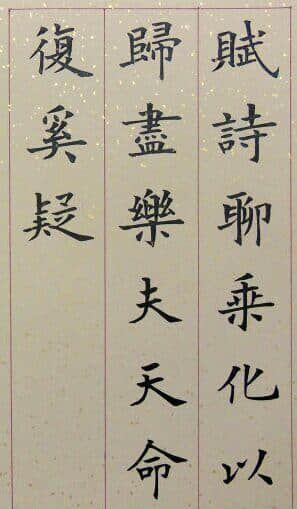 賦詩聊乘化以
歸盡樂夫天命
復奚疑